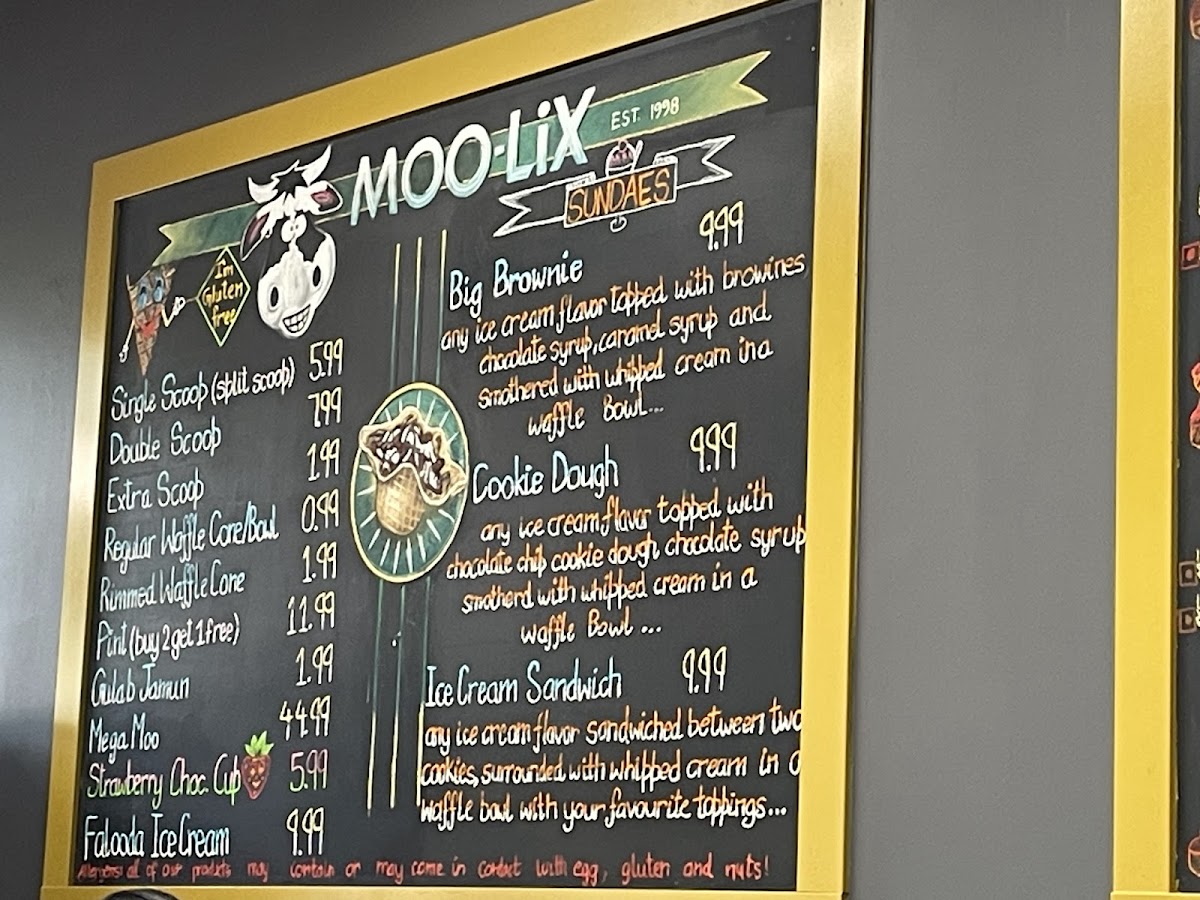 MOO-LiX EST. 1998
I'm
Gluten
free
Single Scoop (split scoop) 5.99
Double Scoop 7.99
Extra Scoop 1.99
Regular Waffle Cone/Bowl 0.99
Rimmed Waffle Cone 1.99
Pint (buy 2 get 1 free) 11.99
Gulab Jamun 1.99
Mega Moo 44.99
Strawberry Choc. Cup 5.99
Falooda Ice Cream 9.99
SUNDAES
Big Brownie 9.99
any ice cream flavor topped with browines
chocolate syrup, caramel syrup and
smothered with whipped cream in a
waffle Bowl...
Cookie Dough 9.99
any ice cream flavor topped with
chocolate chip cookie dough chocolate syrup
smotherd with whipped cream in a
waffle Bowl ...
Ice Cream Sandwich 9.99
any ice cream flavor sandwiched between two
cookies, surrounded with whipped cream in a
waffle bowl with your favourite toppings...
Allergens: all of our products may contain or may come in contact with egg, gluten and nuts!